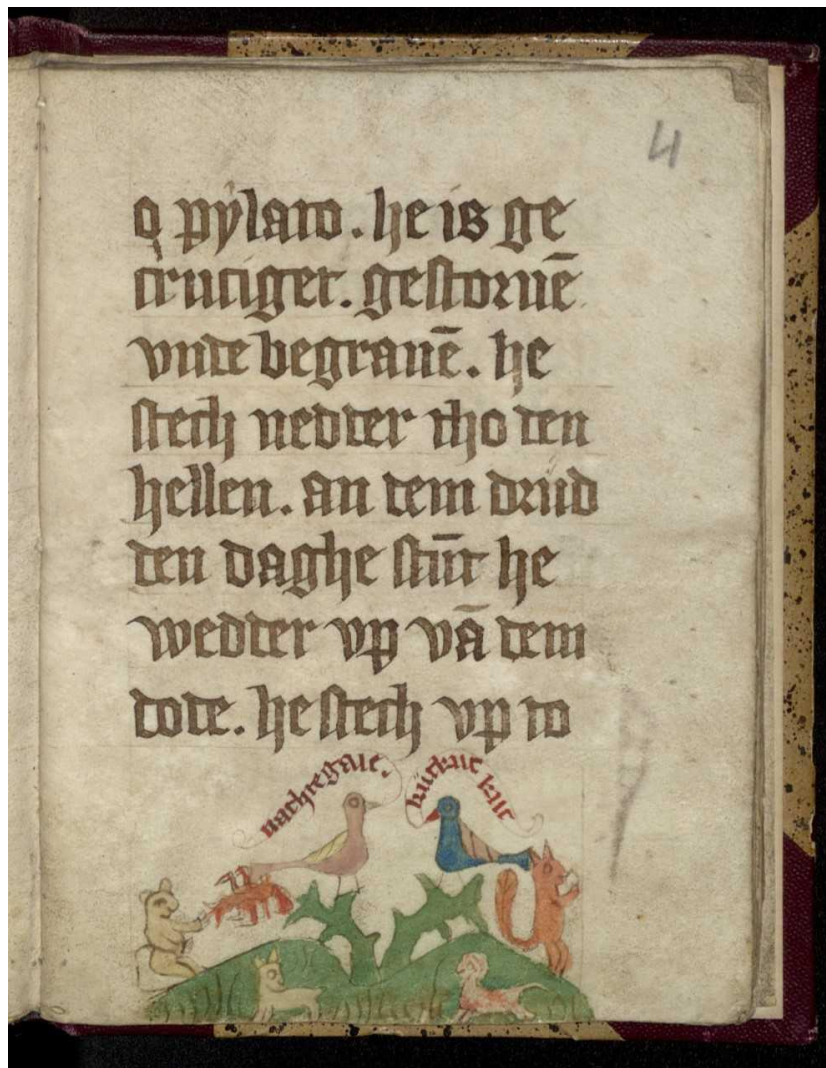 4
o pylato. he is ge
cruciget. gestoruē
vnde begrauē. he
stech nedder tho den
hellen. an dem drud
den daghe stūt he
wedder vp vā dem
dode. he stech vp to
nachtegale.
kuckuc kuc